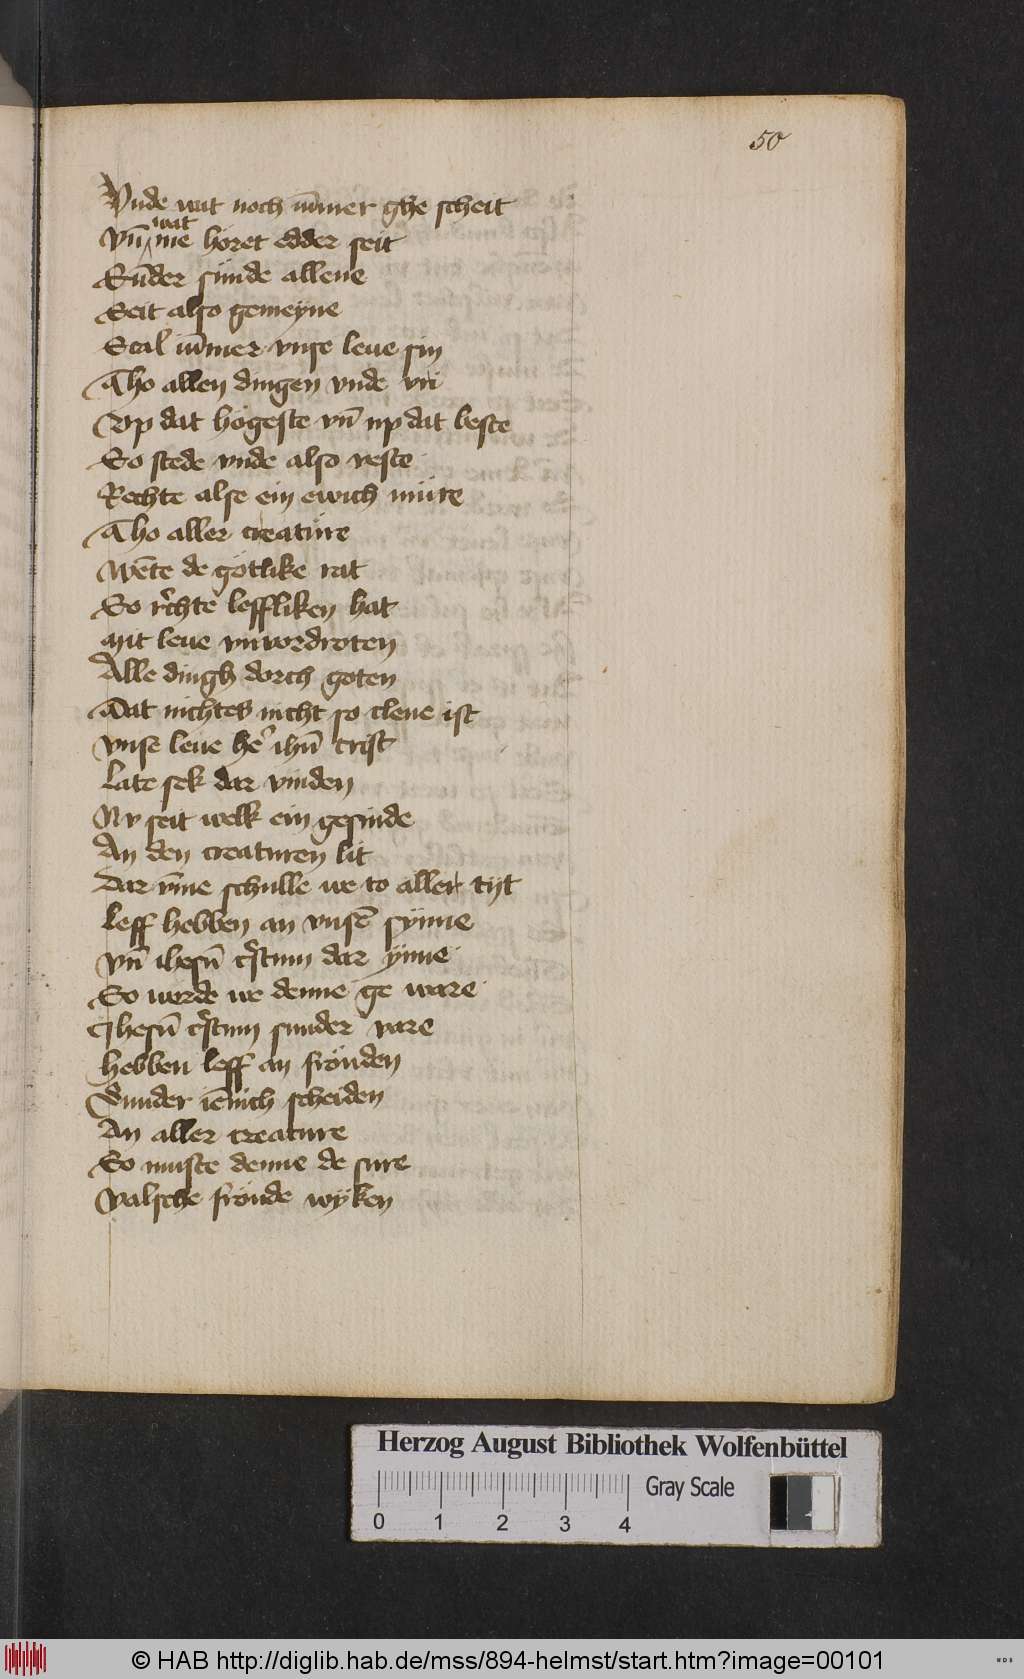 50
Vnde wat noch ūmer ghe scheit
Vn̄ wat me höret edder seit
Sūder sünde allene
Seit also gemeyne
Scal iūmer vnse leue sin
Tho allen dingen vnde vn
Vp dat högeste vn̄ up dat beste
So stede vnde also veste
Rechte alse ein ewich müre
Tho aller creatüre
Wēte de götlike rat
So rechte leffliken hat
Mit leue vnvordroten
Alle dingh dorch goten
Dat nichtes nicht so clene ist
Vnse leue he᷑ ihū crist
Late sek dar vinden
Nv seit welk ein gesinde
An den creaturen lit
Dar v̄me schulle we to aller tijt
Leff hebben an vnsē synne
Vn̄ ihesū cr̄stum dar ynne
So werde we denne ge ware
Ihesū cr̄stum sunder vare
Hebben leff an frönden
Sunder iēnich scheiden
An aller creature
So muste denne de sure
Valsche fröude wyken
Herzog August Bibliothek Wolfenbüttel
Gray Scale
0 1 2 3 4
© HAB http://diglib.hab.de/mss/894-helmst/start.htm?image=00101